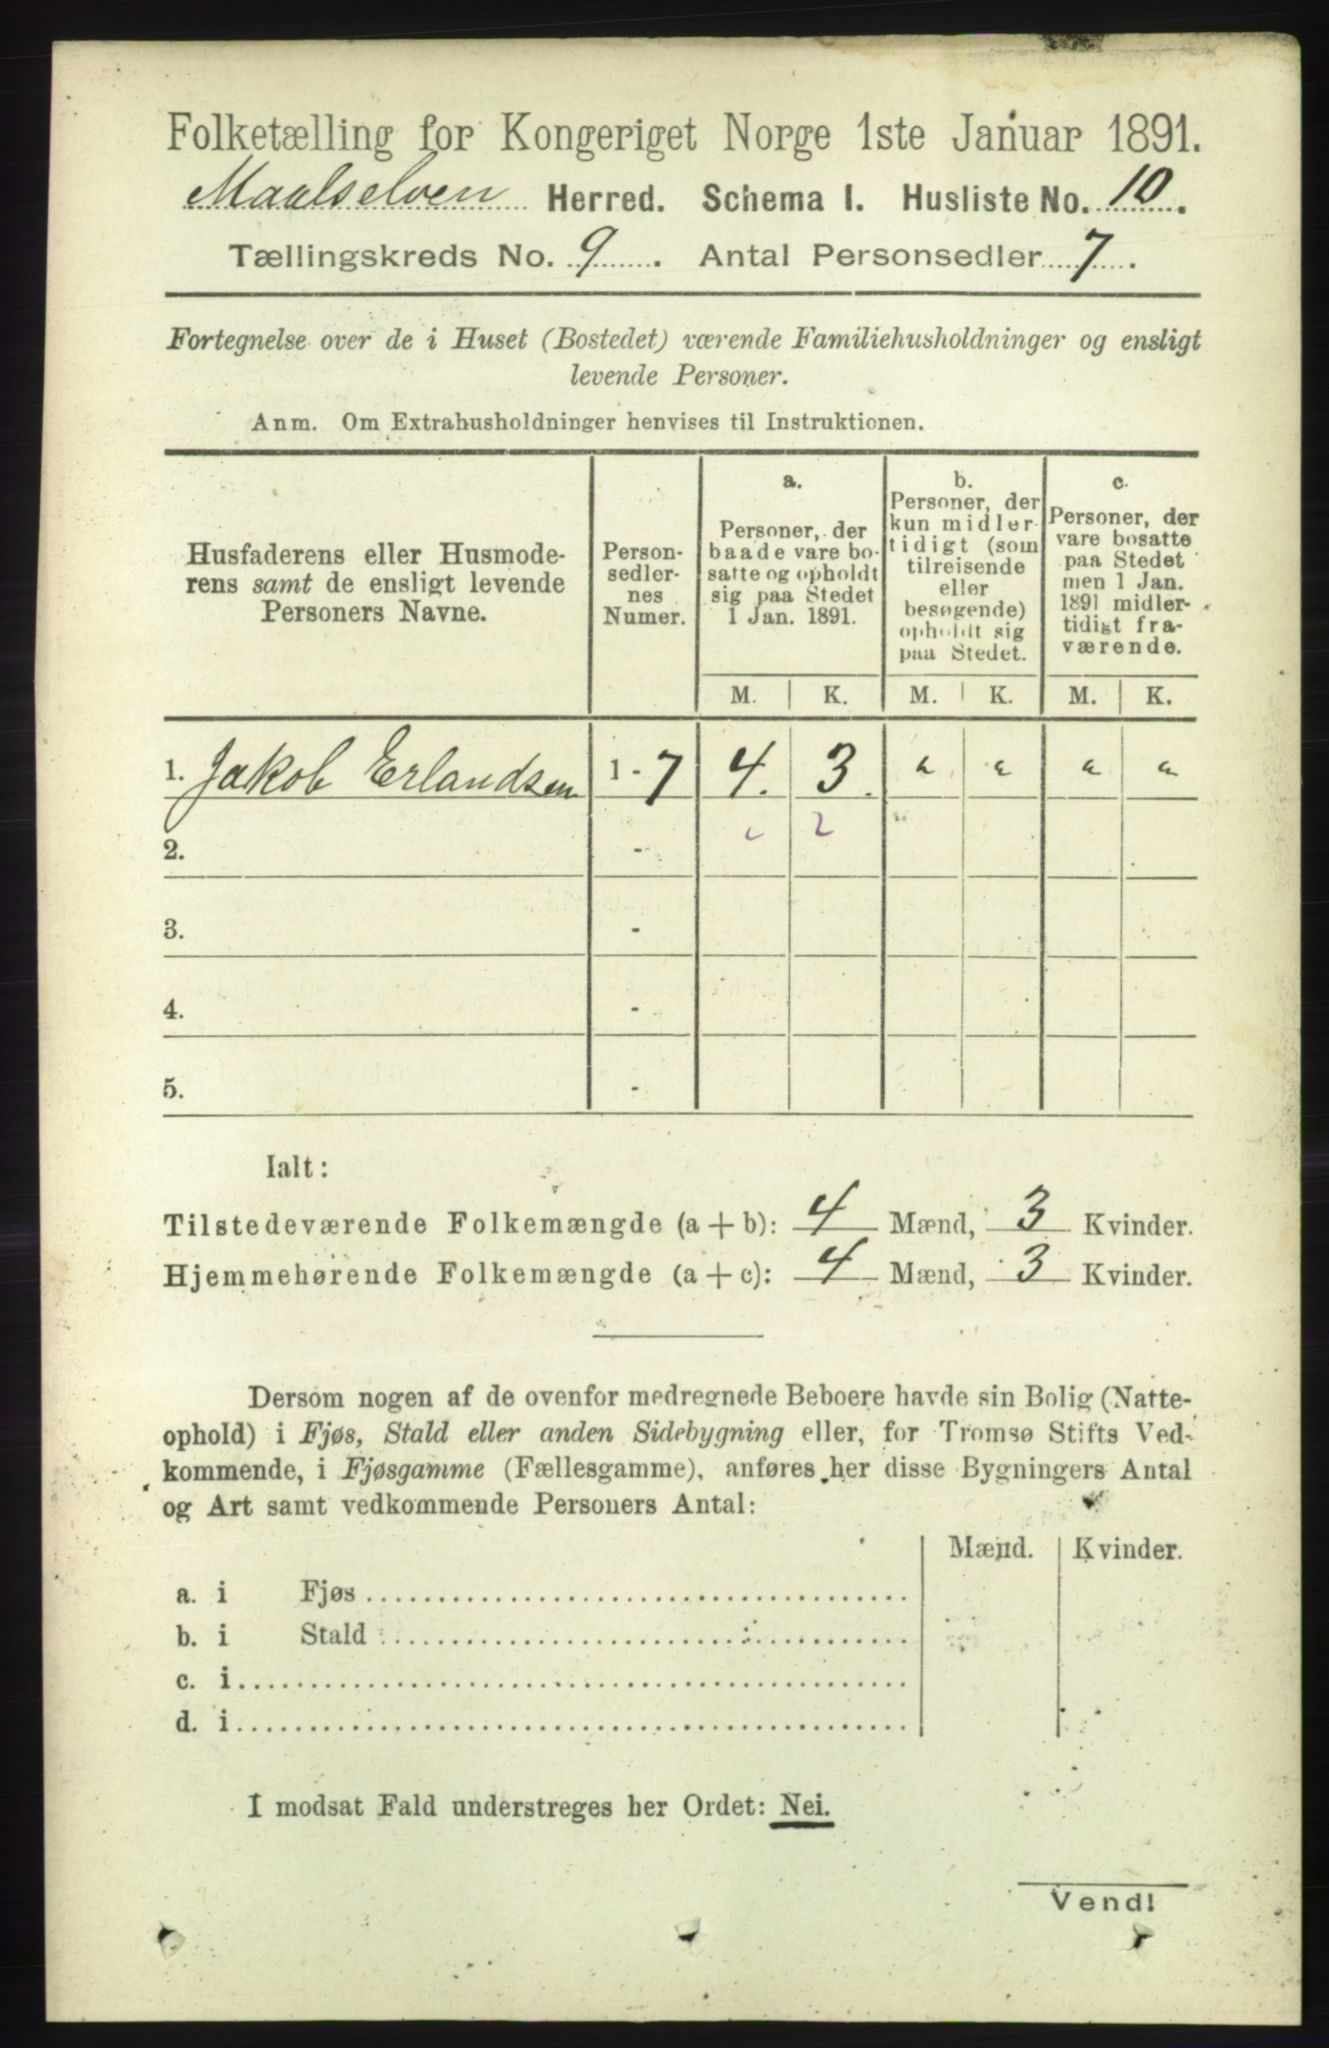 Folketælling for Kongeriget Norge 1ste Januar 1891.
Maalselven Herred. Schema I. Husliste No. 10.
Tællingskreds No. 9. Antal Personsedler 7.
Fortegnelse over de i Huset (Bostedet) værende Familiehusholdninger og ensligt
levende Personer.
Anm. Om Extrahusholdninger henvises til Instruktionen.
Husfaderens eller Husmode-
rens samt de ensligt levende
Personers Navne.
Person-
sedler-
nes
Numer.
a.
Personer, der
baade vare bo-
satte og opholdt
sig paa Stedet
1 Jan. 1891.
b.
Personer, der
kun midler-
tidigt (som
tilreisende
eller
besøgende)
opholdt sig
paa Stedet.
c.
Personer, der
vare bosatte
paa Stedet
men 1 Jan.
1891 midler-
tidigt fra-
værende.
M. K. M. K. M. K.
1. Jakob Erlandsen 1 - 7 4. 3. " " " "
2
2. -
3. -
4. -
5. -
Ialt:
Tilstedeværende Folkemængde (a + b): 4 Mænd, 3 Kvinder.
Hjemmehørende Folkemængde (a + c): 4 Mænd, 3 Kvinder.
Dersom nogen af de ovenfor medregnede Beboere havde sin Bolig (Natte-
ophold) i Fjøs, Stald eller anden Sidebygning eller, for Tromsø Stifts Ved-
kommende, i Fjøsgamme (Fællesgamme), anføres her disse Bygningers Antal
og Art samt vedkommende Personers Antal:
Mænd. Kvinder.
a. i Fjøs
b. i Stald
c. i
d. i
I modsat Fald understreges her Ordet: Nei.
Vend!